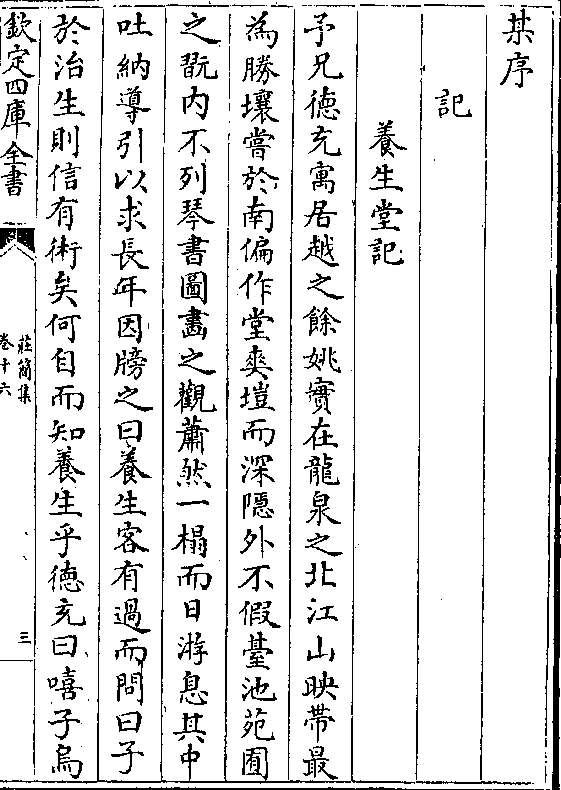 某序
記
養生堂記
予兄德充寓居越之餘姚實在龍泉之北江山映帶最
為勝壤嘗於南偏作堂爽塏而深隱外不假臺池苑囿
之翫内不列琴書圖畫之觀蕭然一榻而日游息其中
吐納導引以求長年因牓之曰養生客有過而問曰子
於治生則信有術矣何自而知養生乎德充曰嘻子烏
欽定四庫全書
莊簡集
卷十六
三